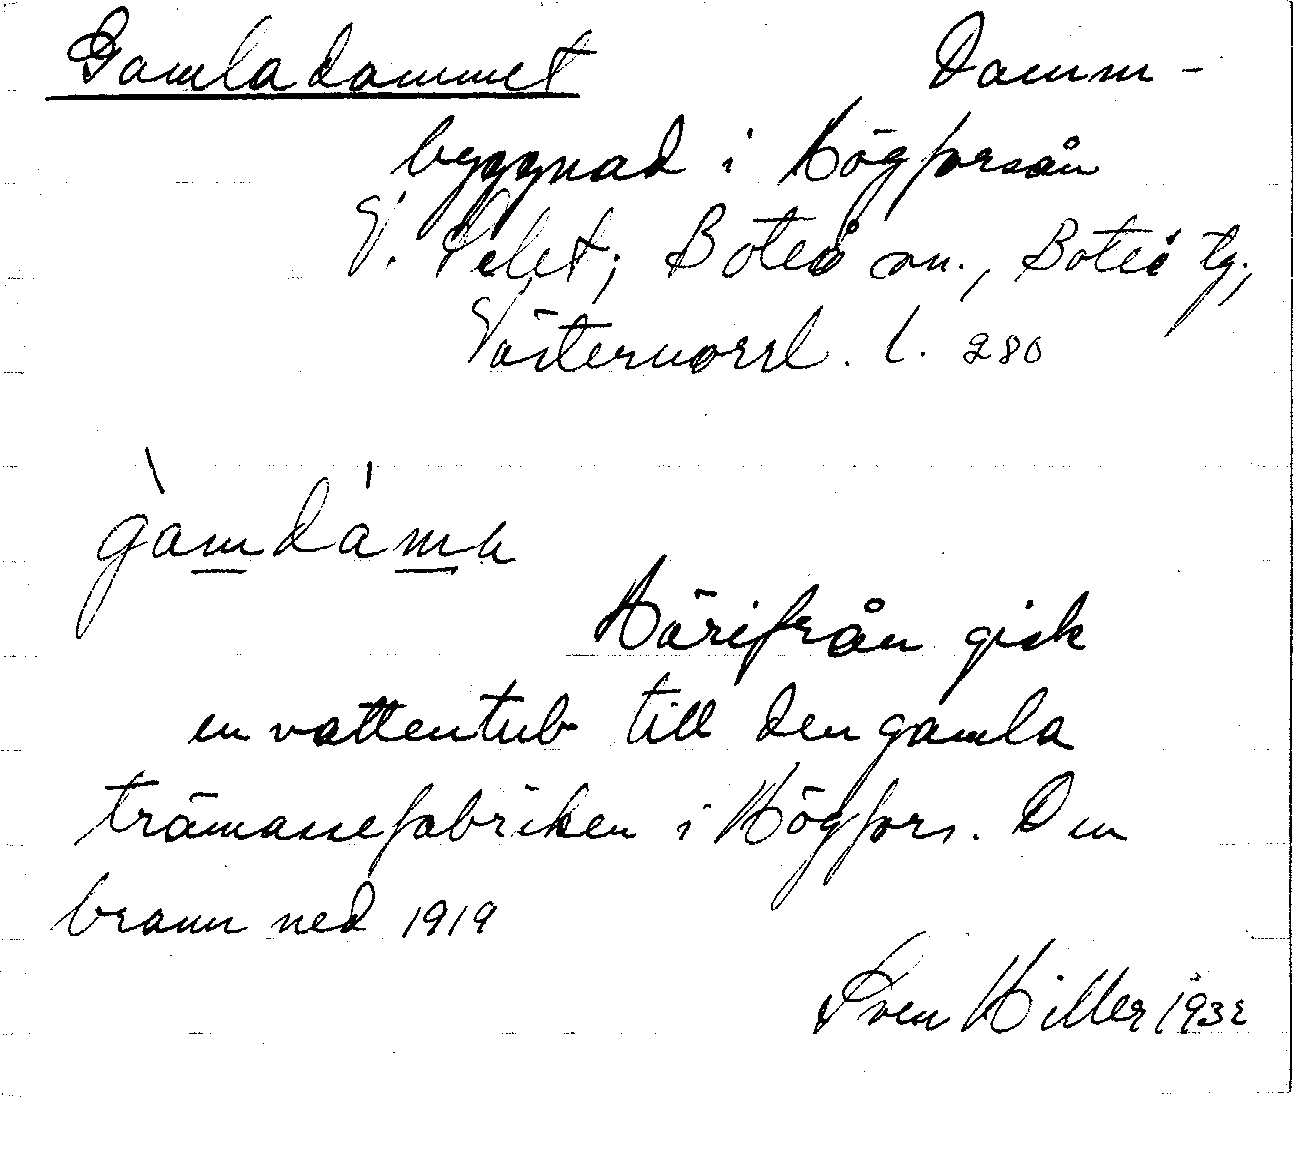 Gamladammet Damm-
byggnad i Högforsån
V. Selet, Boteå sn., Boteå tg.,
Västernorrl. l. 280
gamdamə
Härifrån gick
en vattentub till den gamla
trämassefabriken i Högfors. Den
brann ned 1919
Sven Hiller 1932